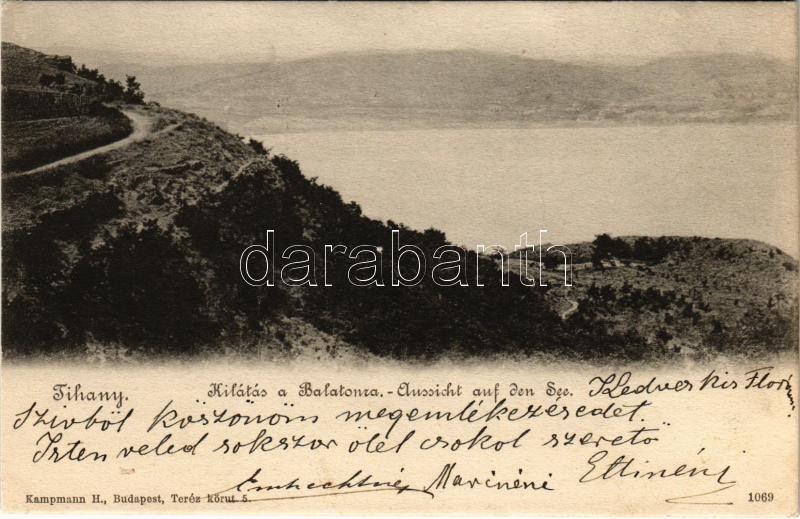 darabanth
Tihany. Kilátás a Balatonra. - Aussicht auf den See. Kedves kis Flóri
Szivből köszönöm megemlékezésedet.
Isten veled sokszor ölel csokol szerető
Marinéni Ettinéni
Kampmann H., Budapest, Teréz körut 5. 1069